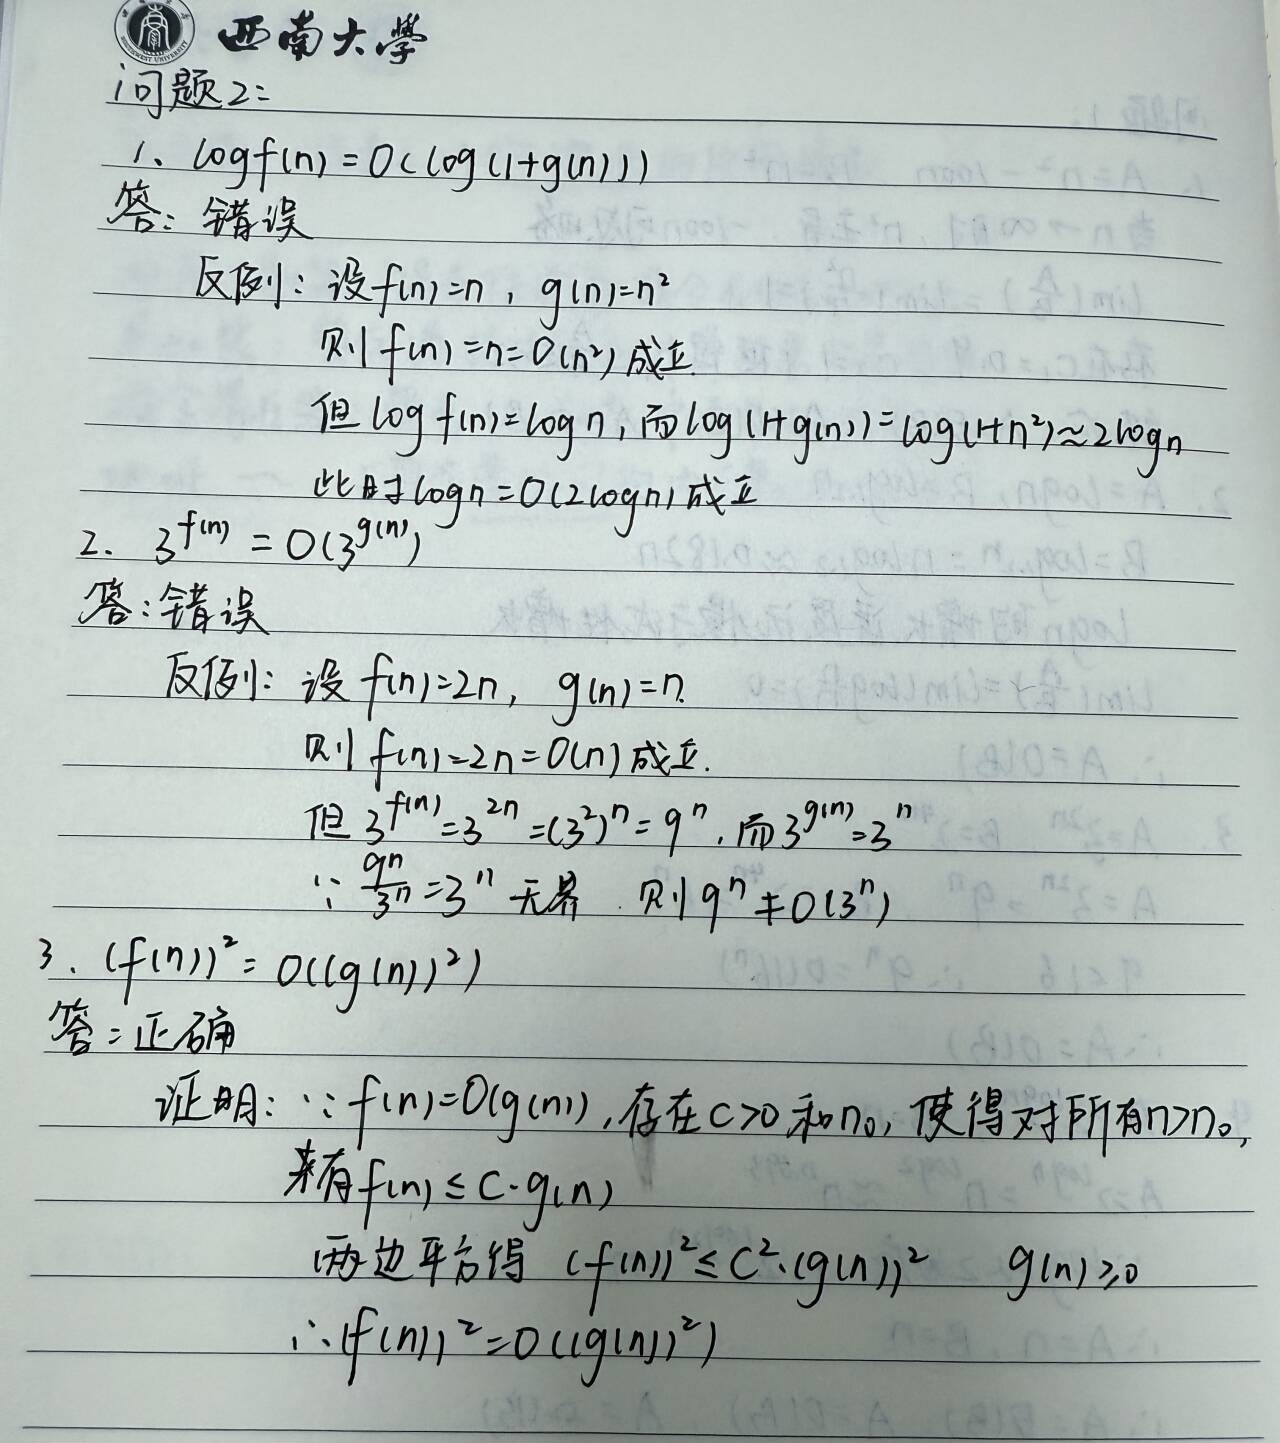 西南大学
问题2:
1、logf(n)=O(log(1+g(n)))
答:错误
反例:设f(n)=n,g(n)=n²
则f(n)=n=O(n²)成立
但logf(n)=logn,而log(1+g(n))=log(1+n²)≈2logn
此时logn=O(2logn)成立
2、3^f(n)=O(3^g(n))
答:错误
反例:设f(n)=2n,g(n)=n.
则f(n)=2n=O(n)成立.
但3^f(n)=3^2n=(3²)^n=9^n,而3^g(n)=3^n
∵9^n/3^n=3^n无界 则9^n≠O(3^n)
3、(f(n))²=O((g(n))²)
答:正确
证明:∵f(n)=O(g(n)),存在c>0和n₀,使得对所有n>n₀,
有f(n)≤c·g(n)
两边平方得 (f(n))²≤c²·(g(n))² g(n)≥0
∴(f(n))²=O((g(n))²)